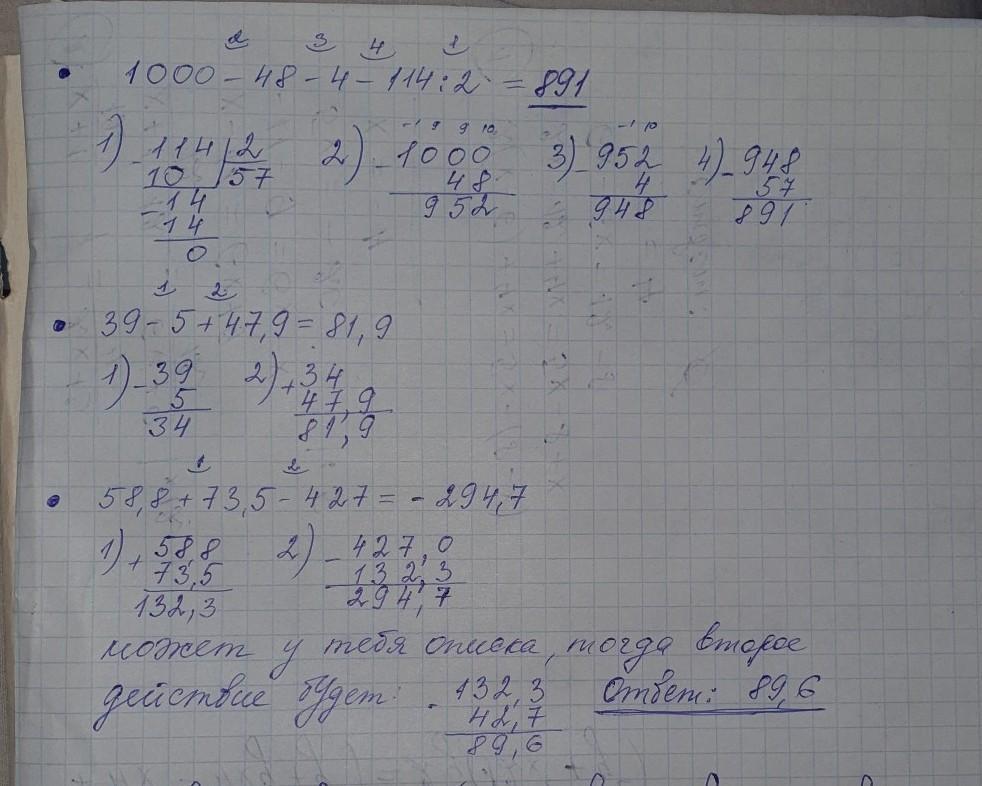 2 3 4 1
1000 - 48 - 4 - 114 : 2 = 891
1) 114 | 2 2) 1000 3) 952 4) 948
10 57 48 4 57
14 952 948 891
14
0
1 2
39 - 5 + 47,9 = 81,9
1) - 39 2) + 34
5 47,9
34 81,9
1 2
58,8 + 73,5 - 427 = - 294,7
1) + 58,8 2) - 427,0
73,5 132,3
132,3 294,7
может у тебя описка, тогда второе
действие будет: - 132,3 Ответ: 89,6
42,7
89,6